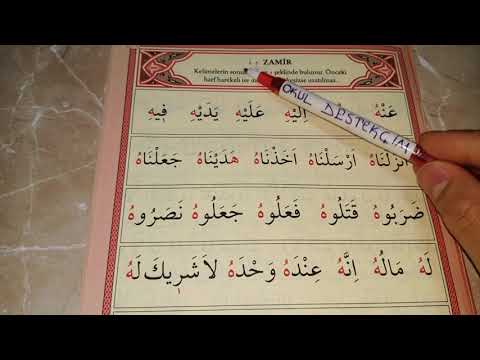 ZAMİR
Kelimelerin şeklinde bulunur. Önceki
harf harekeli ise uzatılmaz.
OKUL DESTEKÇİM
عَنْهُ إِلَيْهِ عَلَيْهِ يَدَيْهِ فِيهِ
اَنْزَلْنَاهُ اَرْسَلْنَاهُ اَخَذْنَاهُ هَدَيْنَاهُ جَعَلْنَاهُ
ضَرَبُوهُ قَتَلُوهُ فَعَلُوهُ جَعَلُوهُ نَصَرُوهُ
لَهُ مَالُهُ اِنَّهُ عِنْدَهُ وَحْدَهُ لَا شَرِيكَ لَهُ